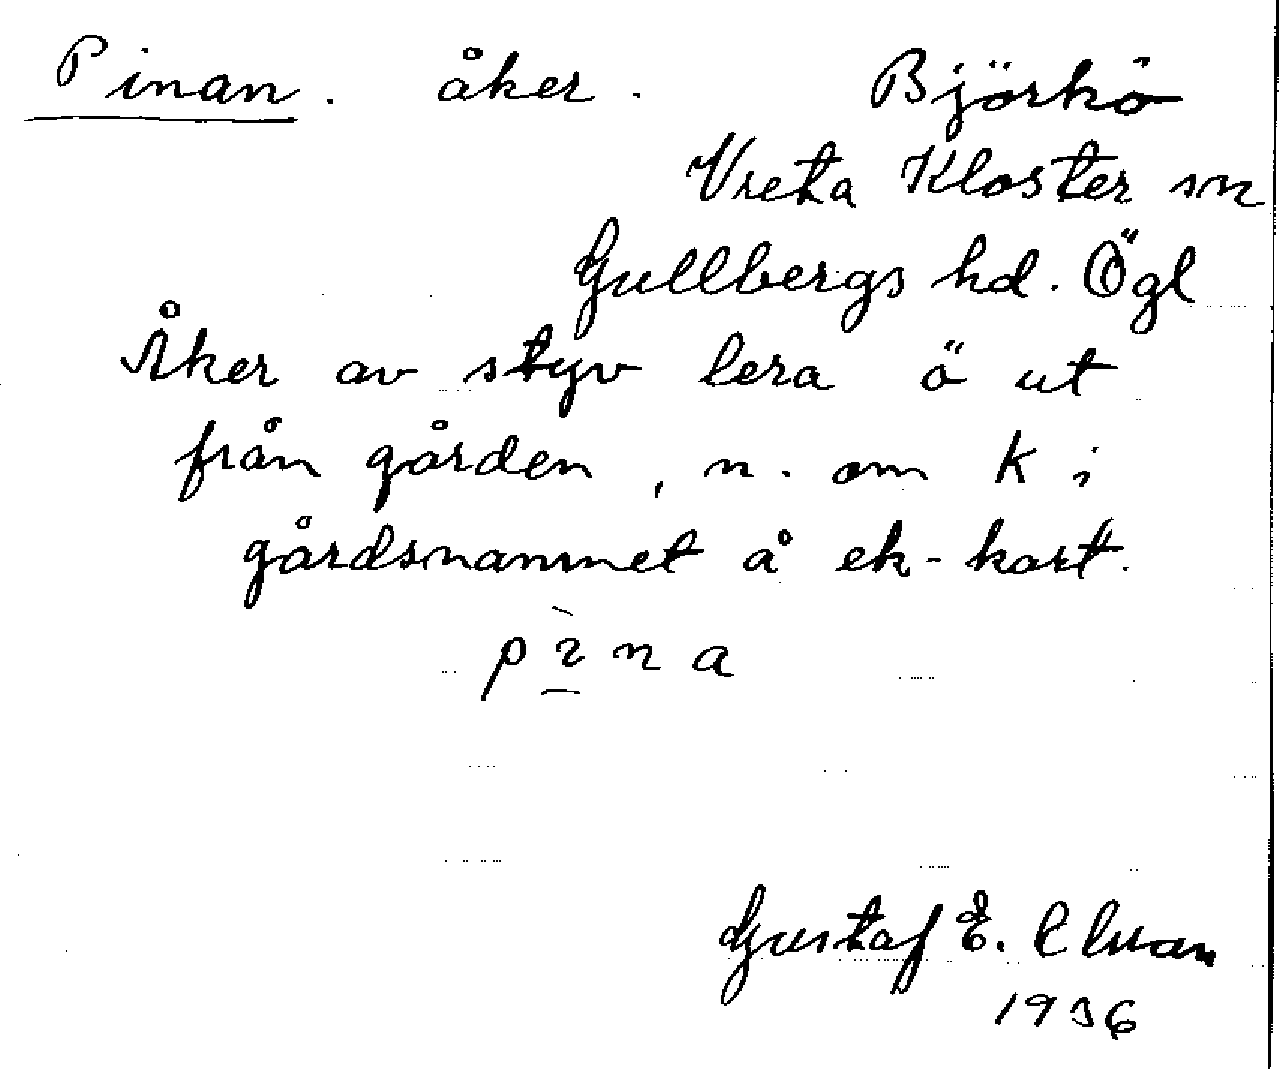 Pinan. åker. Björkö
Vreta Kloster sn
Gullbergs hd. Ögl
Åker av styv lera ö ut
från gården, n. om K i
gårdsnamnet å ek-kart.
Gustaf E.
1936